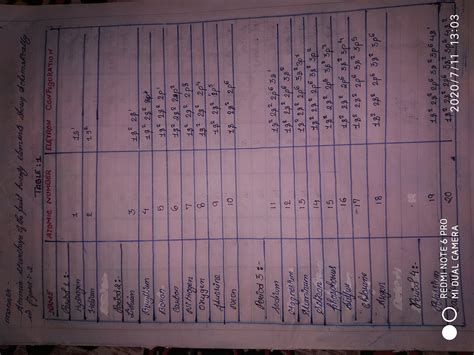 Atomic structure of the first twenty elements
TABLE : 1
NAME ATOMIC NUMBER ELETRON CONFIGURATION
Period 1 :-
Hydrogen 1 1s¹
Helium 2 1s²
Period 2 :-
Lithium 3 1s² 2s¹
Beryllium 4 1s² 2s²
Boron 5 1s² 2s² 2p¹
Carbon 6 1s² 2s² 2p²
Nitrogen 7 1s² 2s² 2p³
Oxygen 8 1s² 2s² 2p⁴
Fluorine 9 1s² 2s² 2p⁵
Neon 10 1s² 2s² 2p⁶
Period 3 :-
Sodium 11 1s² 2s² 2p⁶ 3s¹
Magnesium 12 1s² 2s² 2p⁶ 3s²
Aluminium 13 1s² 2s² 2p⁶ 3s² 3p¹
Silicon 14 1s² 2s² 2p⁶ 3s² 3p²
Phosphorus 15 1s² 2s² 2p⁶ 3s² 3p³
Sulfur 16 1s² 2s² 2p⁶ 3s² 3p⁴
Chlorine 17 1s² 2s² 2p⁶ 3s² 3p⁵
Argon 18 1s² 2s² 2p⁶ 3s² 3p⁶
Period 4 :-
19 1s² 2s² 2p⁶ 3s² 3p⁶ 4s¹
20 1s² 2s² 2p⁶ 3s² 3p⁶ 4s²
REDMI NOTE 6 PRO
MI DUAL CAMERA
2020/7/11 13:03